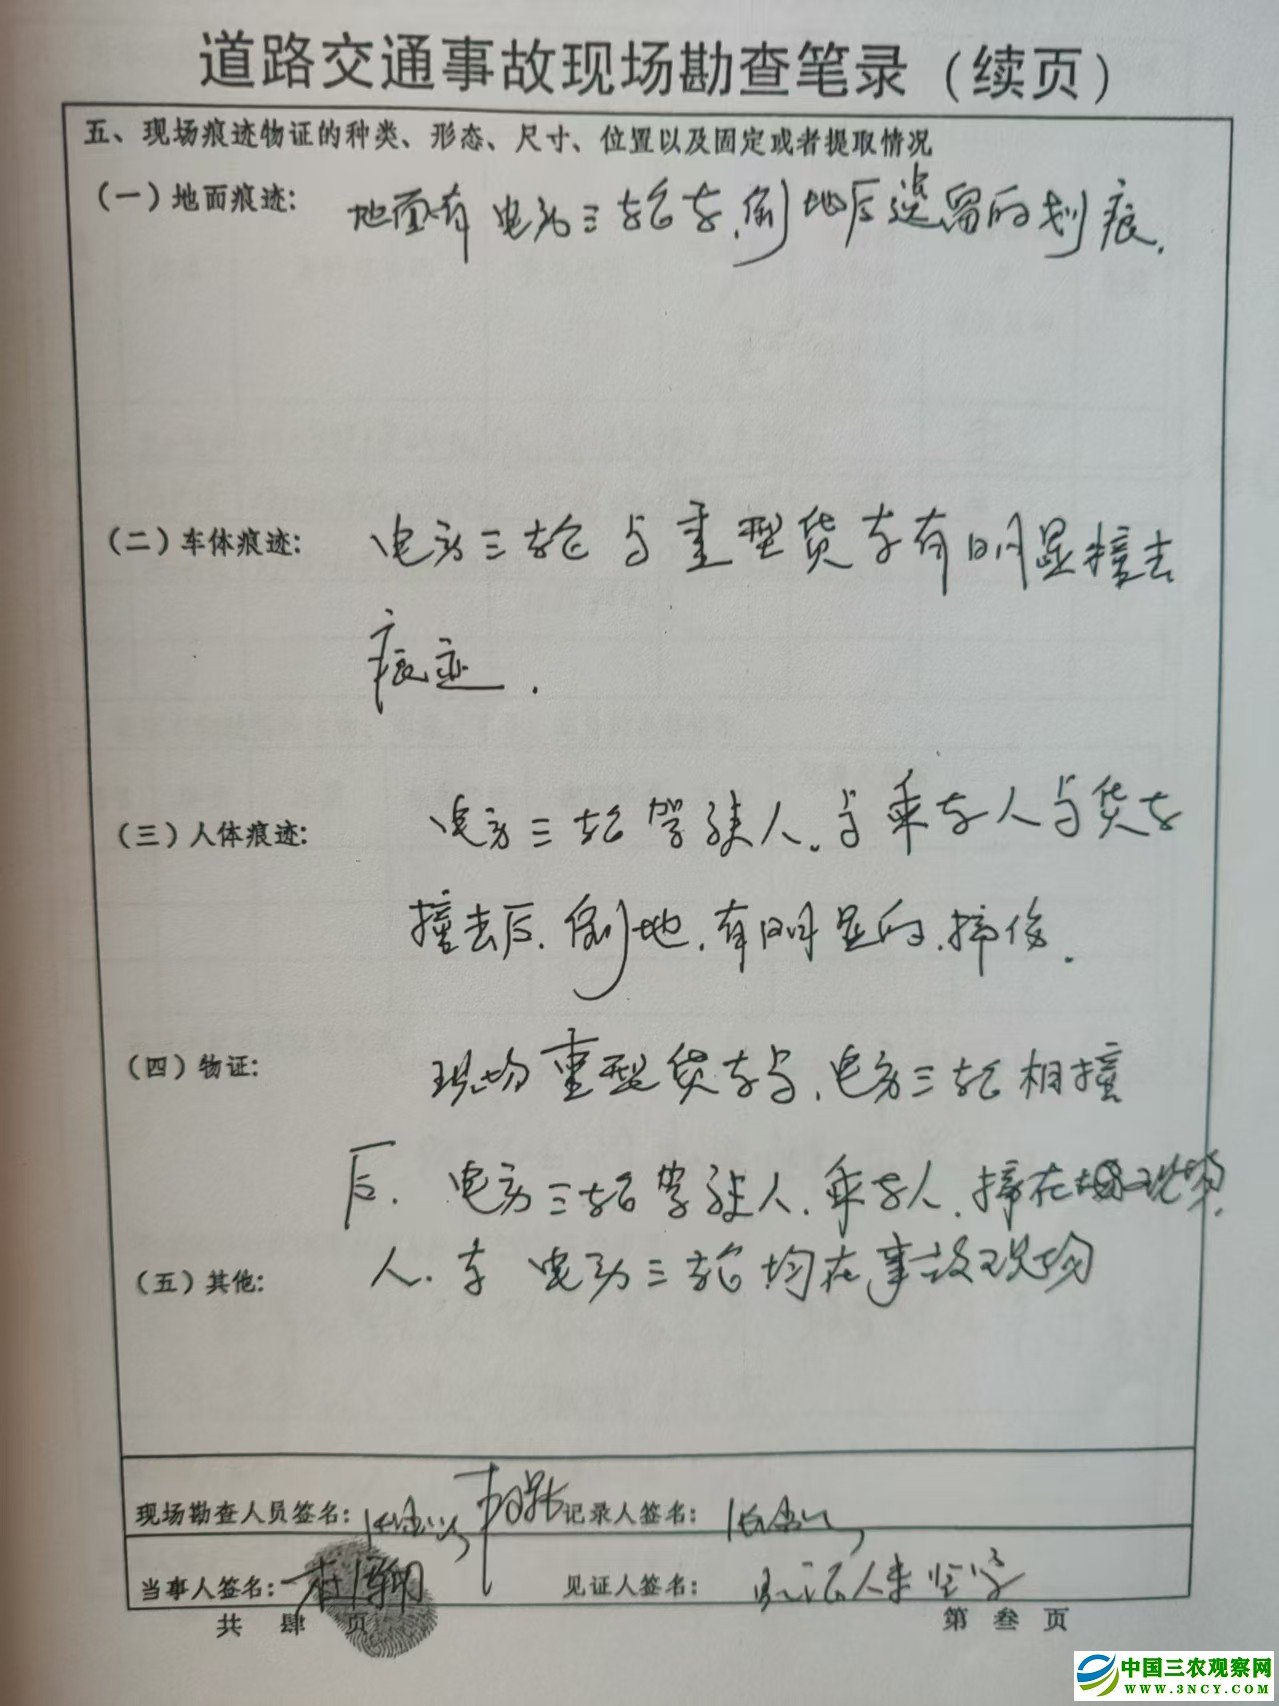 道路交通事故现场勘查笔录（续页）
五、现场痕迹物证的种类、形态、尺寸、位置以及固定或者提取情况
（一）地面痕迹: 地面有电动三轮车,倒地后遗留的划痕.
（二）车体痕迹: 电动三轮与重型货车有明显撞击
痕迹.
（三）人体痕迹: 电动三轮驾驶人.与乘车人与货车
撞击后.倒地.有明显的.摔伤.
（四）物证: 现场重型货车与.电动三轮相撞
后.电动三轮驾驶人.乘车人.摔在现场.
（五）其他: 人.车 电动三轮均在事故现场
现场勘查人员签名: 记录人签名:
当事人签名: 见证人签名: 见证人
共 肆 页 第 叁 页
中国三农观察网
WWW.3NCY.COM